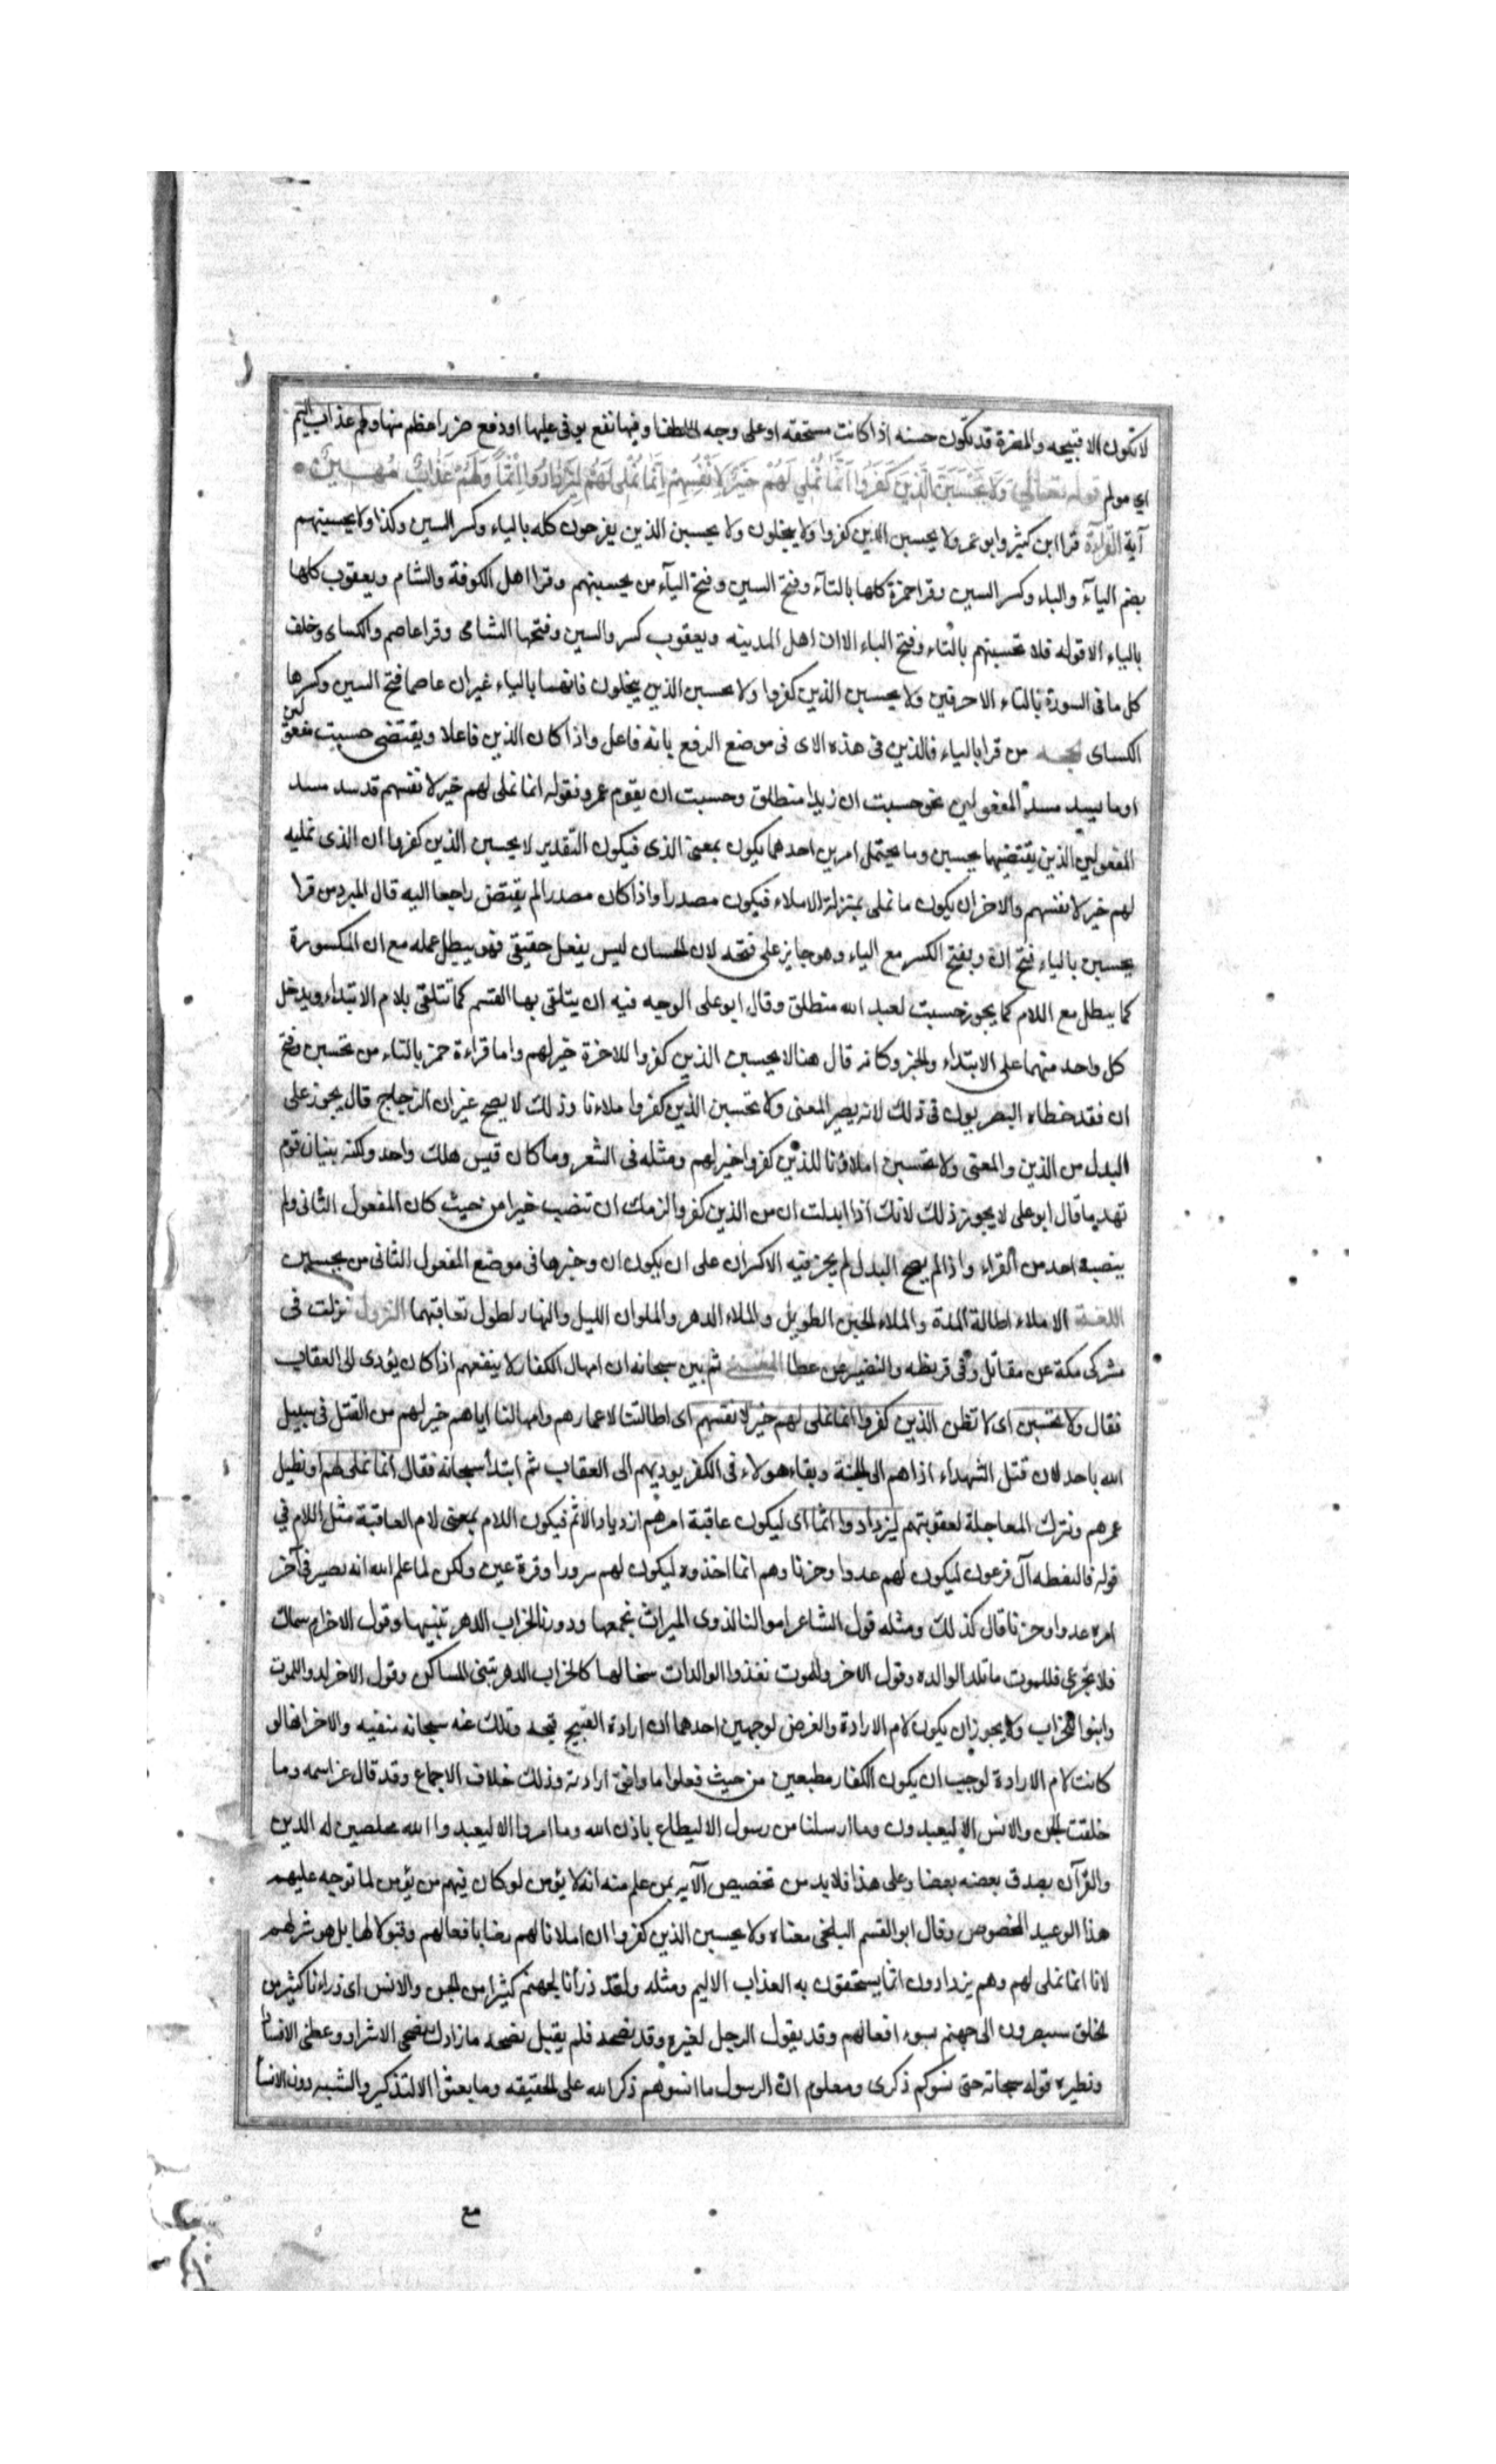 لا تكون الا قبيحه والمضرة قد تكون حسنه اذا كانت مستحقه او على وجه اللطف او فيها نفع يوفى عليها او دفع ضرر اعظم منها ولهم عذاب اليم
اى مولم قوله تعالى وَلَا يَحْسَبَنَّ الَّذِينَ كَفَرُوا أَنَّمَا نُمْلِي لَهُمْ خَيْرٌ لِأَنْفُسِهِمْ إِنَّمَا نُمْلِي لَهُمْ لِيَزْدَادُوا إِثْمًا وَلَهُمْ عَذَابٌ مُهِينٌ
آية القراءة قرا ابن كثير وابو عمر ولا يحسبن الذين كفروا ولا يحسبن الذين يبخلون ولا يحسبن الذين يفرحون كله بالياء وكسر السين وكذا ولا يحسبنهم
بضم اليآء والباء وكسر السين وقرا حمزة كلها بالتآء وفتح السين وفتح اليآء من يحسبنهم وقرا اهل الكوفة والشام ويعقوب كلها
بالياء الا قوله فلا تحسبنهم بالتاء وفتح الباء الا ان اهل المدينه ويعقوب كسروا السين وفتحها الشامى وقرا عاصم والكساى وخلف
كل ما فى السورة بالتاء الا حرفين ولا يحسبن الذين كفروا ولا يحسبن الذين يبخلون فانهما بالياء غير ان عاصما فتح السين وكسرها
الكساى من قرا بالياء فالذين فى هذه الاى فى موضع الرفع بانه فاعل واذا كان الذين فاعلا ويقتضى حسبت مفعولين
او ما يسد مسد المفعولين نحو حسبت ان زيدا منطلق وحسبت ان يقوم عمرو فقوله انما نملى لهم خير لانفسهم قد سد مسد
المفعولين الذين يقتضيهما يحسبن وما يحتمل امرين احدهما يكون بمعنى الذى فيكون التقدير لا يحسبن الذين كفروا ان الذى نمليه
لهم خير لانفسهم والاخر ان يكون ما نملى بمنزلة الاملاء فيكون مصدرا واذا كان مصدرا لم يقتض راجعا اليه قال المبرد من قرا
يحسبن بالياء فتح ان ويقبح الكسر مع الياء وهو جايز على قبحه لان الحسبان ليس بفعل حقيقى فهو يبطل عمله مع ان المكسورة
كما يبطل مع اللام كما يجوز حسبت لعبد الله منطلق وقال ابو على الوجه فيه ان يتلقى بها القسم كما تتلقى بلام الابتداء ويدخل
كل واحد منهما على الابتداء والخبر وكانه قال هنا لا يحسبن الذين كفروا للاخرة خير لهم واما قراءة حمز بالتاء من تحسبن وفتح
ان فقد خطاه البصريون فى ذلك لانه يصير المعنى ولا تحسبن الذين كفروا املاءنا وذلك لا يصح غير ان الزجاج قال يجوز على
البدل من الذين والمعنى ولا تحسبن املاؤنا للذين كفروا خير لهم ومثله فى الشعر وما كان قيس هلك واحد ولكنه بنيان قوم
تهدما قال ابو على لا يجوز ذلك لانك اذا ابدلت ان من الذين كفروا لزمك ان تنصب خيرا من حيث كان المفعول الثانى ولم
ينصبه احد من القراء واذا لم يصح البدل لم يجز فيه الا كسر ان على ان يكون ان وخبرها فى موضع المفعول الثانى من يحسبن
اللغة الاملاء اطالة المدة والملاء الحين الطويل والملاء الدهر والملوان الليل والنهار لطول تعاقبهما النزول نزلت فى
مشركى مكة عن مقاتل وفى قريظه والنضير عن عطا المعنى ثم بين سبحانه ان امهال الكفار لا ينفعهم اذا كان يؤدى الى العقاب
فقال ولا تحسبن اى لا تظن الذين كفروا انما نملى لهم خير لانفسهم اى اطالتنا لاعمارهم وامهالنا اياهم خير لهم من القتل فى سبيل
الله باحد لان قتل الشهداء اذاهم الى الجنة وبقاء هولاء فى الكفر يوديهم الى العقاب ثم ابتدأ سبحانه فقال انما نملى لهم او نطيل
عمرهم ونترك المعاجلة لعقوبتهم ليزدادوا اثما اى ليكون عاقبة امرهم ازدياد الاثم فيكون اللام بمعنى لام العاقبة مثل اللام في
قوله فالتقطه آل فرعون ليكون لهم عدوا وحزنا وهم انما اخذوه ليكون لهم سرورا وقرة عين ولكن لما علم الله انه يصير فى آخر
امره عدوا وحزنا قال كذلك ومثله قول الشاعر اموالنا لذوى الميراث نجمعها ودورنا لخراب الدهر نبنيها وقول الاخر ام سماك
فلا تجزعى فللموت ما تلد الوالده وقول الاخر وللموت تغذوا الوالدات سخالها كما لخراب الدهر تبنى المساكن وقول الاخر لدوا للموت
وابنوا للخراب ولا يجوز ان يكون لام الارادة والغرض لوجهين احدهما ان ارادة القبيح قبيحه وتلك عنه سبحانه منفيه والاخر انها لو
كانت لام الارادة لوجب ان يكون الكفار مطيعين من حيث فعلوا ما وافق ارادته وذلك خلاف الاجماع وقد قال عز اسمه وما
خلقت الجن والانس الا ليعبدون وما ارسلنا من رسول الا ليطاع باذن الله وما امروا الا ليعبدوا الله مخلصين له الدين
والقرآن يصدق بعضه بعضا وعلى هذا فلا بد من تخصيص الآيه بمن علم منه انه لا يؤمن لو كان فيهم من يؤمن لما توجه عليهم
هذا الوعيد المخصوص وقال ابو القسم البلخى معناه ولا يحسبن الذين كفروا ان املانا لهم رضا بافعالهم وقبولا لها بل هو شر لهم
لانا انما نملى لهم وهم يزدادون اثما يستحقون به العذاب الاليم ومثله ولقد ذرأنا لجهنم كثيرا من الجن والانس اى ذراءنا كثير من
الخلق سيصرون الى جهنم بسوء افعالهم وقد يقول الرجل لغيره وقد نصحه فلم يقبل نصحه ما زادك نصحى الا شرا ووعظى الا فسادا
ونظيره قوله سبحانه حتى نسوكم ذكرى ومعلوم ان الرسول ما انسوهم ذكر الله على الحقيقه وما بعثوا الا للتذكير والتنبيه دون الانسا
مع